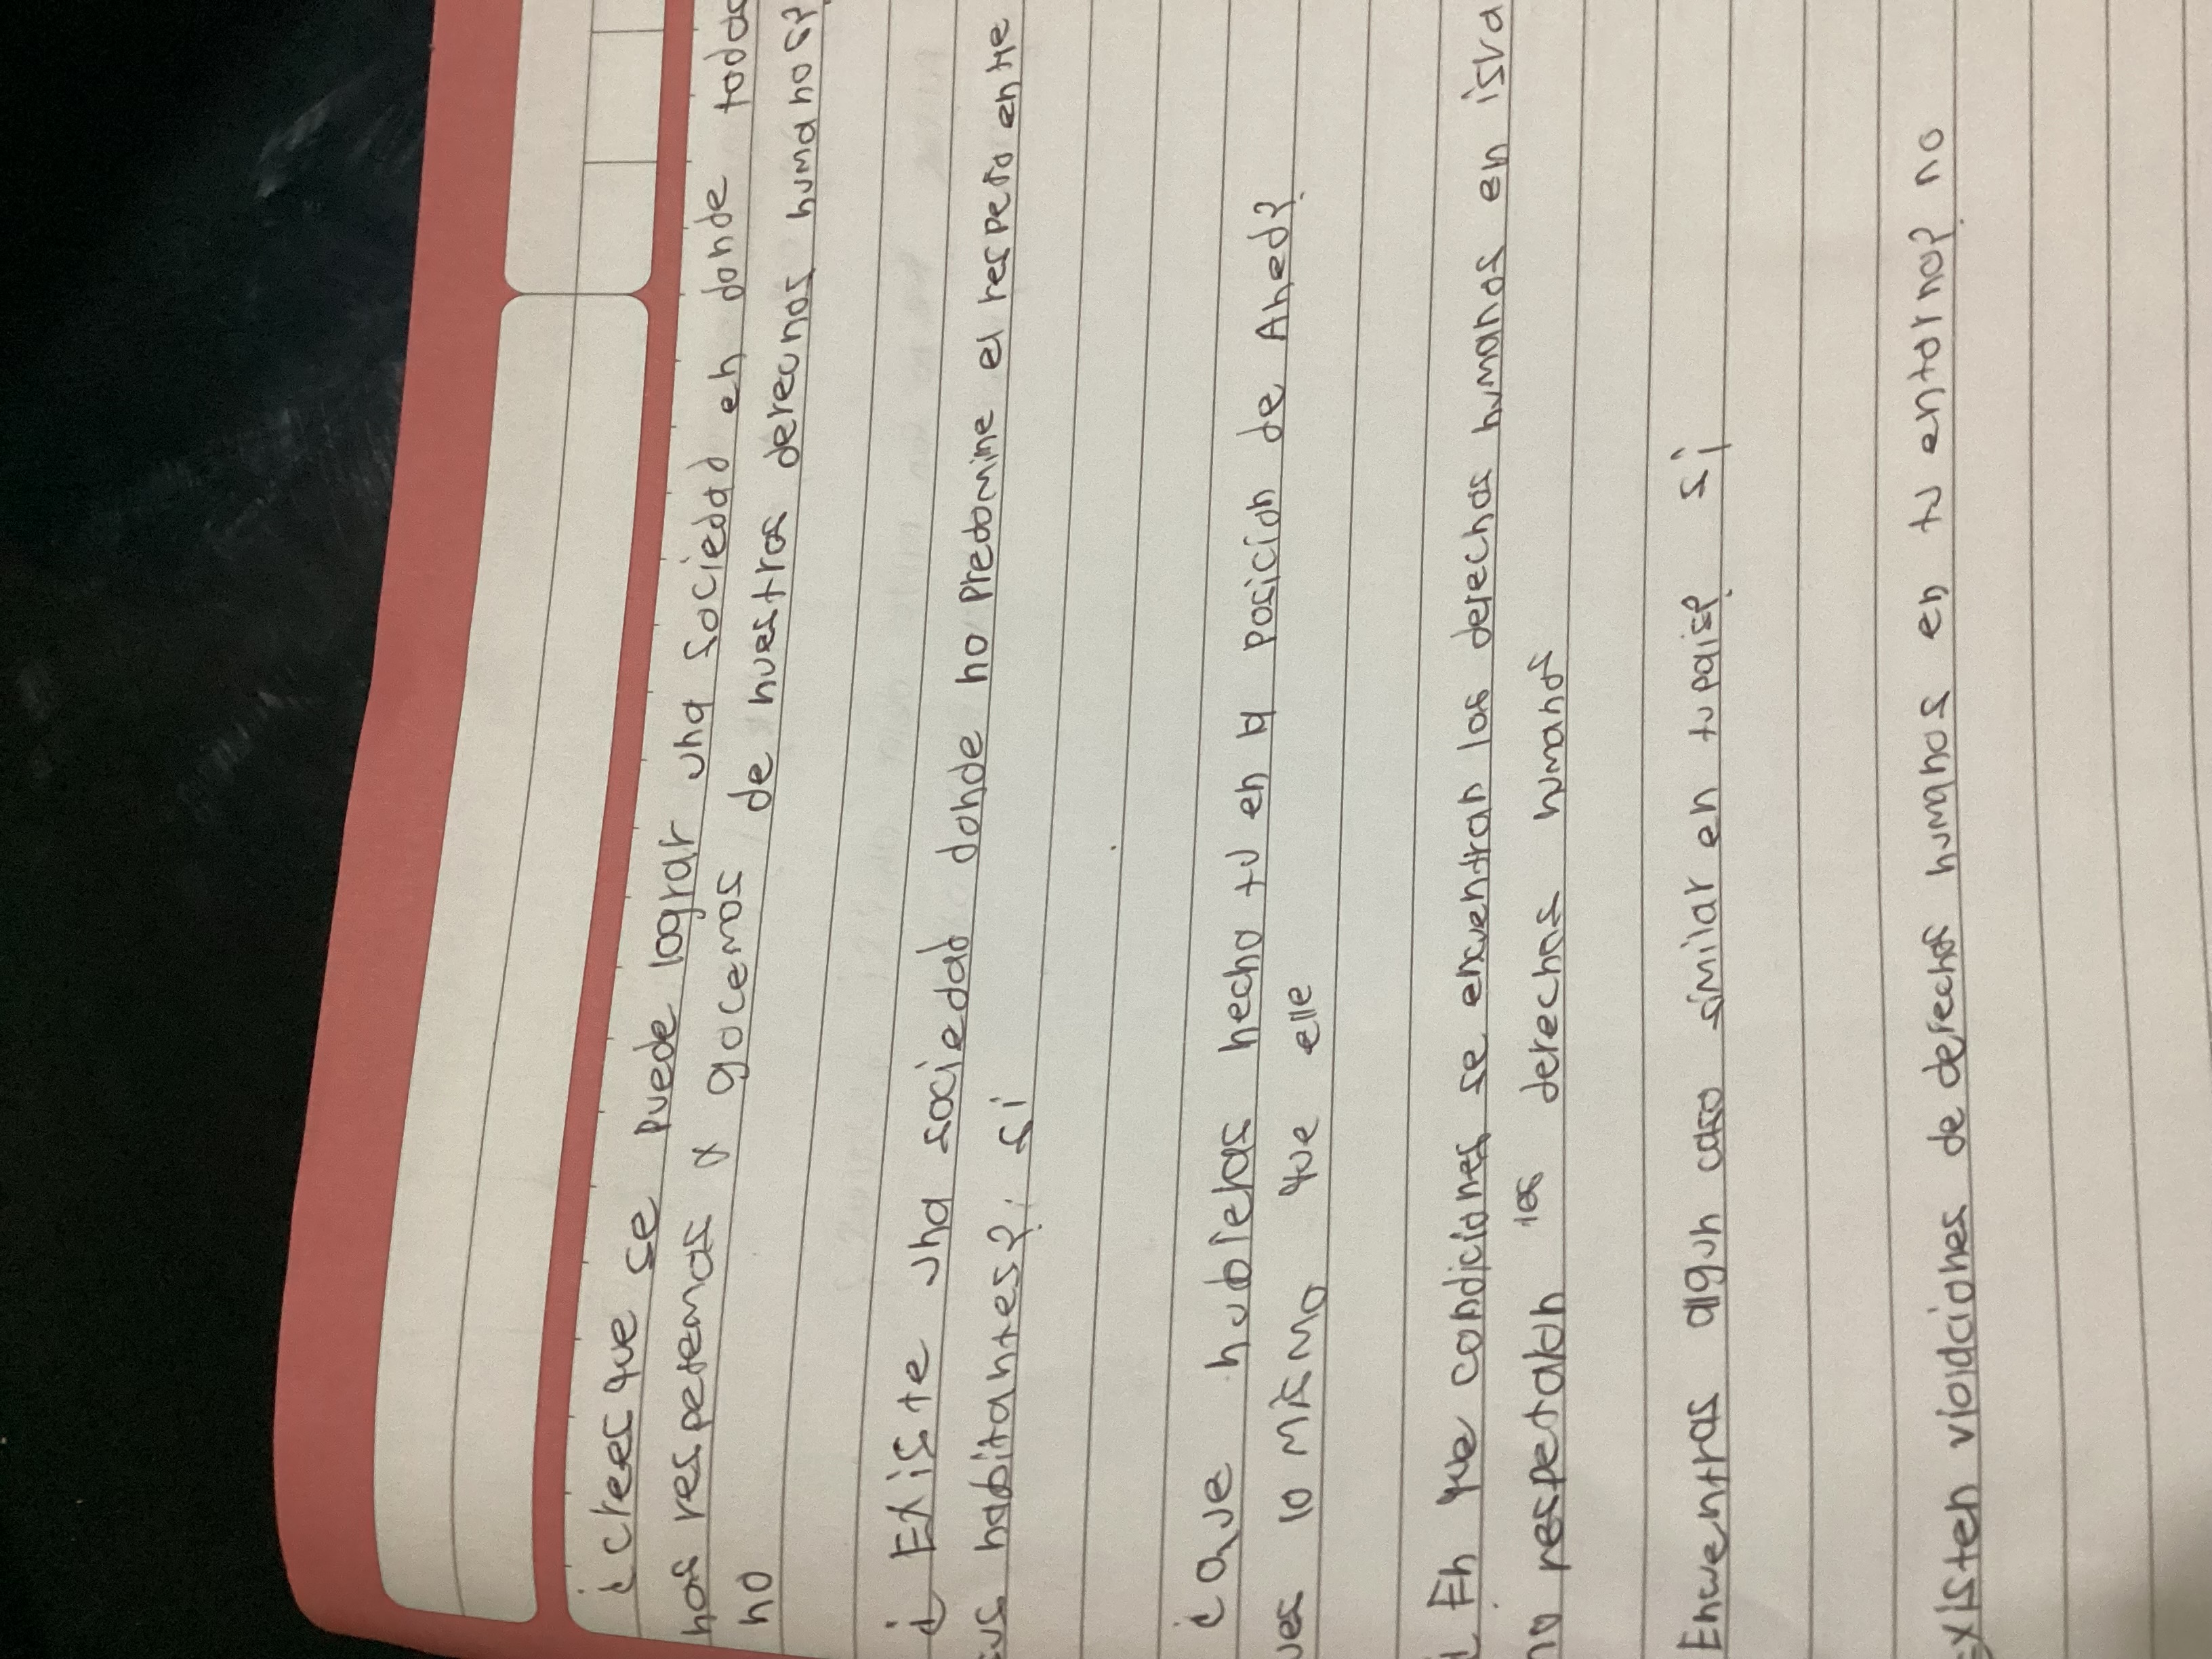 ¿Crees que se puede lograr una sociedad en donde todos
nos respetemos y gocemos de nuestros derecnos humanos?
no
¿Existe una sociedad donde no predomine el respeto entre
sus habitantes? si
¿Que hubieras hecho tu en la posicion de Ahed?
ues lo mismo que elle
¿En que condiciones se encuentran los derechos humanos en isra
no respetaan los derechos humanos
Encuentras algun caso similar en tu pais? si
Existen violaciones de derechos humanos en tu entorno? no